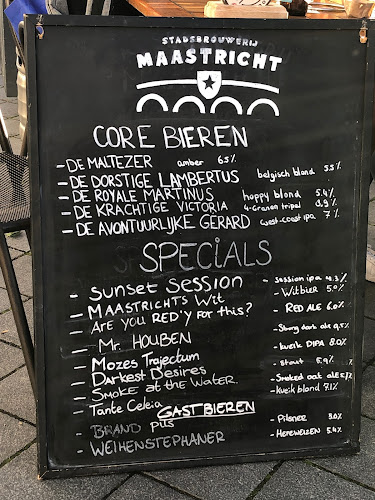 STADSBROUWERIJ
MAASTRICHT
CORE BIEREN
- DE MALTEZER amber 6.5%
- DE DORSTIGE LAMBERTUS belgisch blond 5.5%
- DE ROYALE MARTINUS hoppy blond 5.4%
- DE KRACHTIGE VICTORIA 4-Granen tripel 8.9%
- DE AVONTUURLIJKE GERARD west-coast ipa 7%
SPECIALS
- Sunset Session - Session ipa 4.3%
- MAASTRICHTS Wit - Witbier 5.0%
- Are you RED'y For this? - RED ALE 6.0%
- Mr. HOUBEN - Strong dark ale 9.5%
- Mozes Trajectum - kweik DIPA 8.0%
- Darkest Desires - Stout 5.9%
- Smoke at the Water. - Smoked oat ale 5.1%
- Tante Celeia - Kveik blond 7.1%
GAST BIEREN
- BRAND pils - Pilsner 5.0%
- WEIHENSTEPHANER - Hefeweizen 5.4%